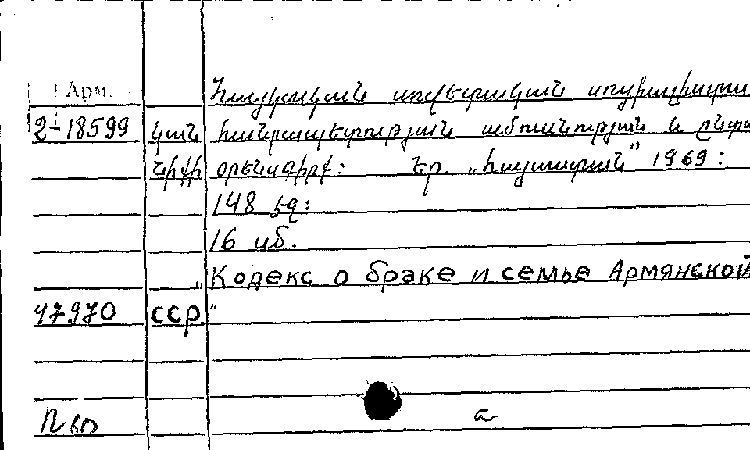 Арм.
Հայկական սովետական սոցիալիստա
2-18599 կան հանրապետության ամուսնության և ընտա
նիքի օրենսգիրք: Եր. „Հայաստան" 1969:
148 էջ:
16 սմ.
„Кодекс о браке и семье Армянской
47970 ССР"